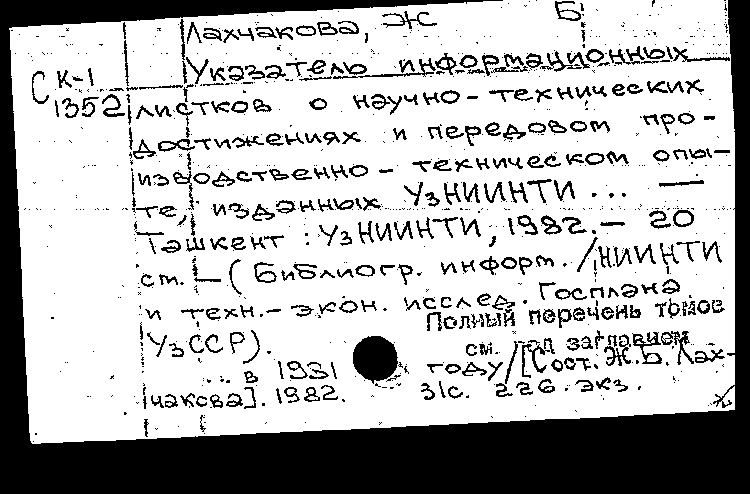 Лахчакова, Ж Б
Указатель информационных
С К-1
1352
листков о научно-технических
достижениях и передовом про-
изводственно-техническом опы-
те, изданных УзНИИНТИ ... —
Ташкент : УзНИИНТИ, 1982. — 20
см. — (Библиогр. информ. /НИИНТИ
и техн.-экон. исслед. Госплана
УзССР).
Полный перечень томов
см. под заглавием
.. в 1981 году/[Сост. Ж.Б. Лах-
чакова]. 1982. 31с. 226 экз.